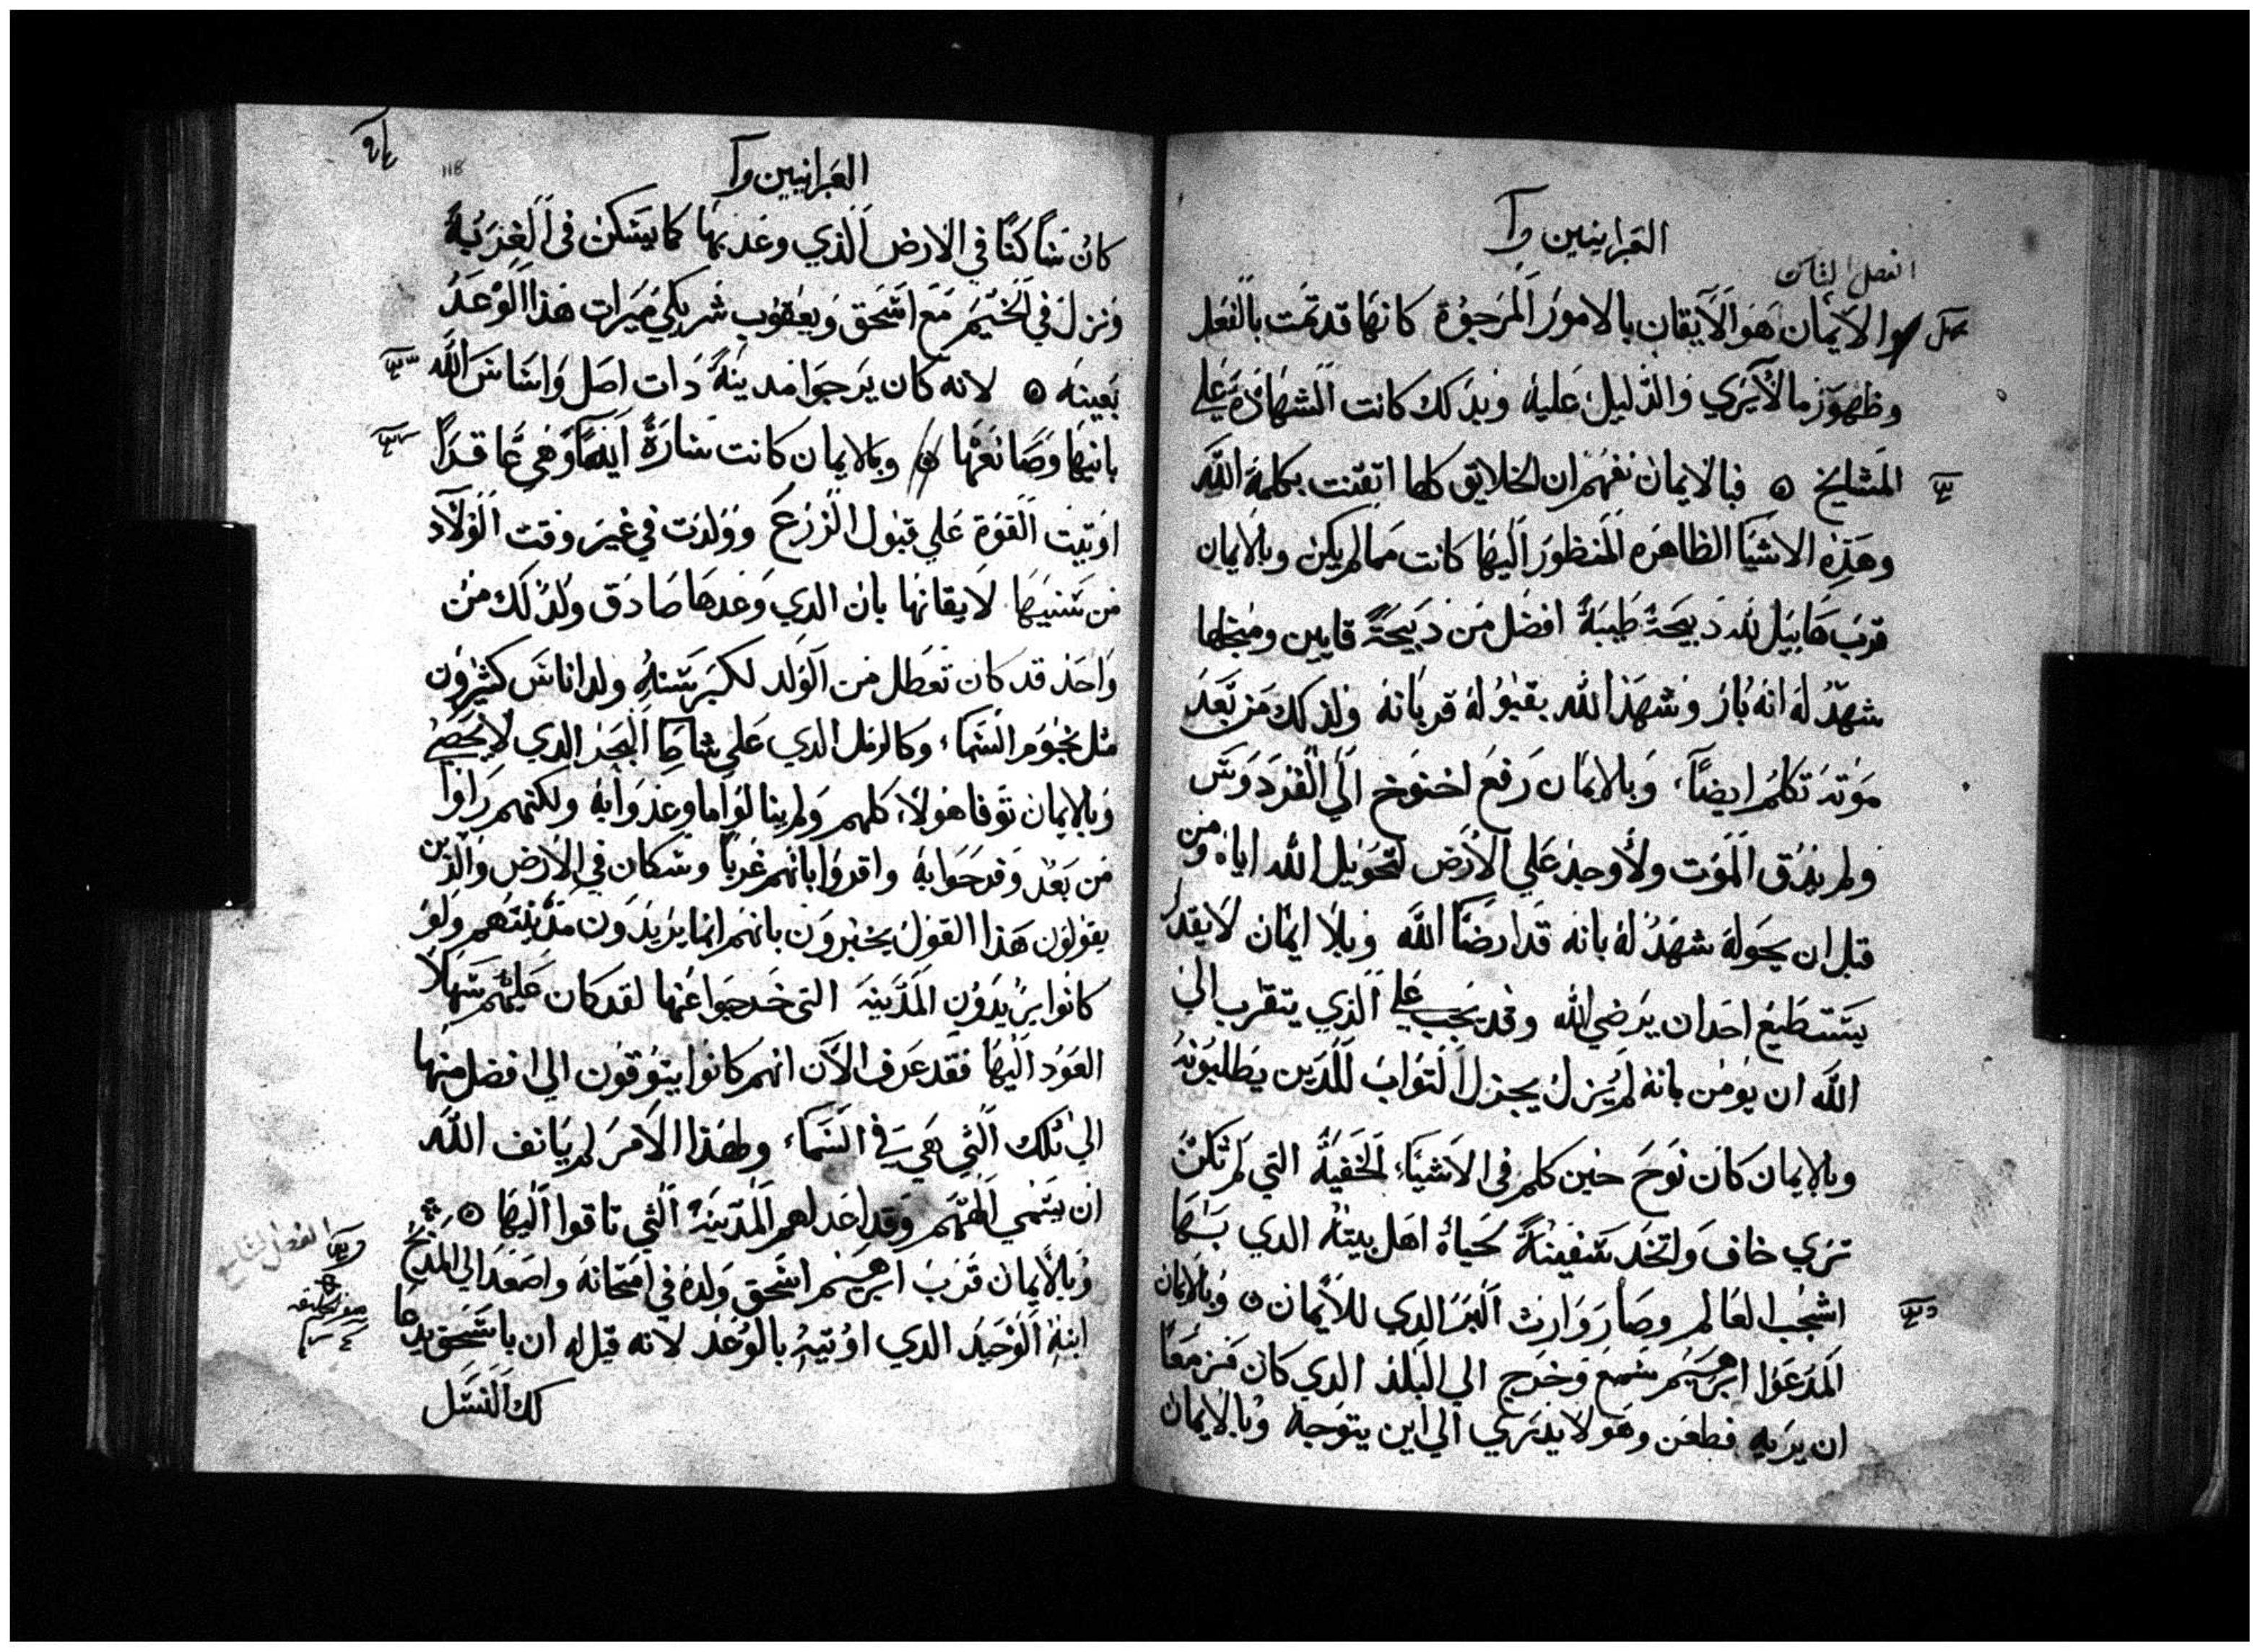 العبرانيين وا
الفصل الثامن
والايمان هو الايقان بالامور المرجوة كانها قد تمت بالفعل
وظهور ما لا يري والدليل عليه وبدلك كانت الشهادة علي
المشايخ ۞ فبالايمان نفهم ان الخلايق كلها اتقنت بكلمة الله
وهذه الاشيا الظاهره المنظور اليها كانت مما لم يكن وبالايمان
قرب هابيل لله دبيحة طيبة افضل من دبيحة قايين ومنجلها
شهد له انه بار وشهد الله بقبوله قربانه ولذلك من بعد
موته تكلم ايضاً وبالايمان رفع اخنوخ الي الفردوس
ولم يدق الموت ولا وجد علي الارض لتحويل الله اياه ومن
قبل ان يحوله شهد له بانه قد ارضا الله وبلا ايمان لا يقدر
يستطيع احد ان يرضي الله وقد يجب علي الذي يتقرب الي
الله ان يومن بانه لم يزل يجزل التواب للدين يطلبونه
وبالايمان كان نوح حين كلم في الاشياء الخفية التي لم تكن
تري خاف واتخد سفينة لحياة اهل بيته الدي بسبها
اشجب العالم وصار وارث البر الدي للايمان ۞ وبالايمان
المدعوا ابرهيم سمع وخرج الي البلد الدي كان مزمعا
ان يريه فطعن وهو لا يدري الي اين يتوجه وبالايمان
العبرانيين وا
118
كان ساكنا في الارض الذي وعد بها كما يسكن في الغربة
ونزل في الخيم مع اسحق ويعقوب شريكي ميرات هذا الوعد
بعينه ۞ لانه كان يرجوا مدينة دات اصل واساس الله
بانيها وصانعها ۞ وبالايمان كانت سارة ايضا وهي عاقراً
اوتيت القوة علي قبول الزرع وولدت في غير وقت الولاد
من سنيها لايقانها بان الدي وعدها صادق ولدلك من
واحد قد كان تعطل من الولد لكبر سنه ولد اناس كثيرون
مثل نجوم السماء وكالرمل الدي علي شاطا البحر الدي لا يحصي
وبالايمان توفا هولاء كلهم ولم ينالوا ما وعدوا به ولكنهم راوا
من بعد وفرحوا به واقروا بانهم غربا وسكان في الارض والدين
يقولون هذا القول يخبرون بانهم انما يريدون مدينتهم ولو
كانوا يريدون المدينة التي خرجوا عنها لقد كان عليهم سهلا
العود اليها فقد عرف الان انهم كانوا يتوقون الي افضل منها
الي تلك التي هي في السماء ولهذا الامر لم يانف الله
ان يسمي الههم وقد اعد لهم المدينة التي تاقوا اليها ۞
الفصل التاسع
وبالايمان قرب ابرهيم اسحق ولده في امتحانه واصعد الي المدبح
ابنه الوحيد الدي اوتيه بالوعد لانه قيل له ان باسحق يدعا
لك النسل